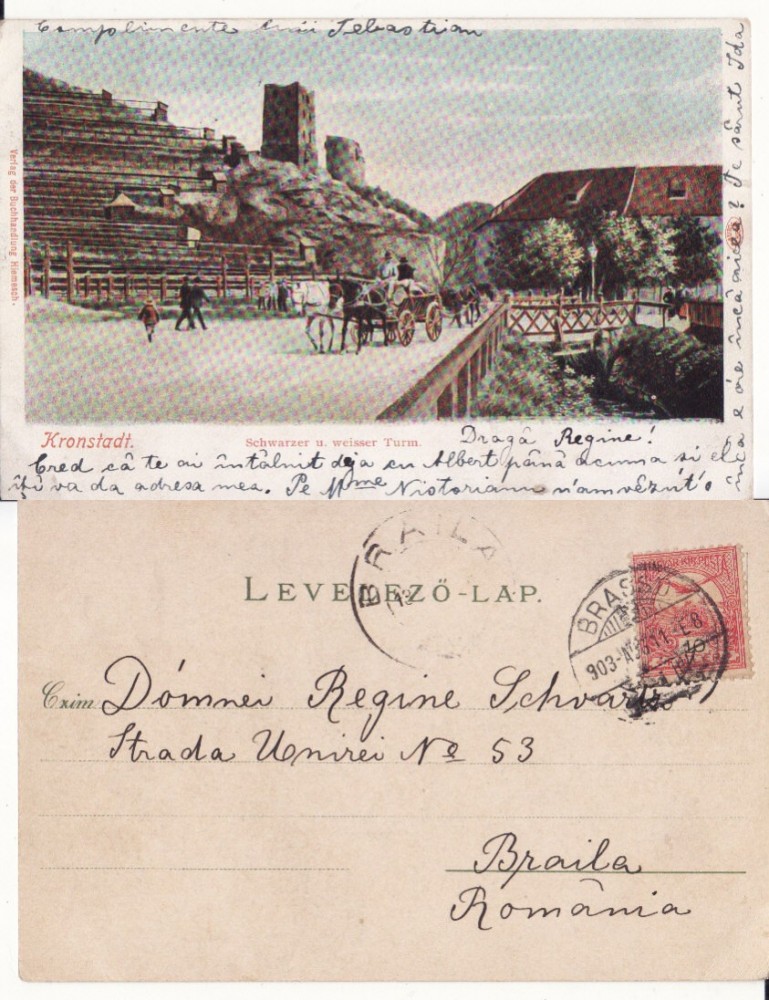 Complimente lui Sebastian
Verlag der Buchhandlung Hiemesch.
Kronstadt.
Schwarzer u. weisser Turm.
Dragă Regine!
Cred că te ai întâlnit deja cu Albert până acuma si el
îți va da adresa mea. Pe Mme Nistorianu n'am vězut'o
încă e óre încă mica? Te sărut Ida
BRAILA
LEVELEZŐ-LAP.
BRASSÓ
903
POSTA
10
Czim
Dómnei Regine Schvartz
Strada Unirei No 53
Braila
România